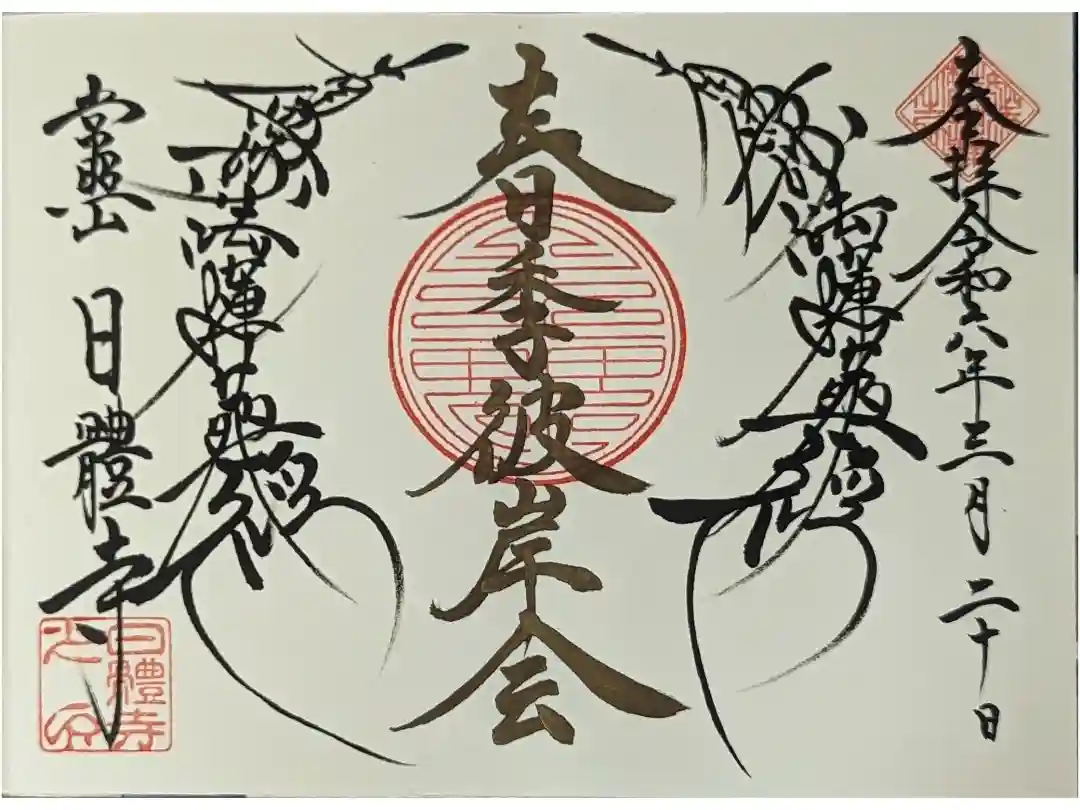 奉拝 令和六年三月二十日
南無妙法蓮華經
春季彼岸会
南無妙法蓮華經
常照山 日體寺
日體寺
之印